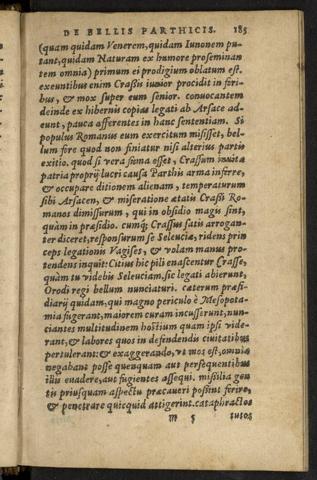 DE BELLIS PARTHICIS. 185
(quam quidam Venerem, quidam Iunonem pu-
tant, quidam Naturam ex humore proseminan
tem omnia) primum ei prodigium oblatum est.
exeuntibus enim Crassus iunior procidit in fori-
bus, & mox super eum senior. conuocantem
deinde ex hibernis copias legati ab Arsace ad-
eunt, pauca afferentes in hanc sententiam. Si
populus Romanus eum exercitum misisset, bel-
lum fore quod non finiatur nisi alterius partis
exitio. quod si vera fama esset, Crassum inuita
patria proprij lucri causa Parthis arma inferre,
& occupare ditionem alienam, temperaturum
sibi Arsacem, & miseratione ætatis Crassi Ro-
manos dimissurum, qui in obsidio magis sint,
quàm in præsidio. cumq; Crassus satis arrogan-
ter diceret, responsurum se Seleuciæ, ridens prin
ceps legationis Vagises, & volam manus pro-
tendens inquit: Citius hîc pili enascentur Crasse,
quàm tu videbis Seleuciam. sic legati abierunt,
Orodi regi bellum nunciaturi. cæterum præsi-
diarij quidam, qui magno periculo è Mesopota-
mia fugerant, maiorem curam incusserunt, nun-
ciantes multitudinem hostium quam ipsi vide-
rant, & labores quos in defendendis ciuitatibus
pertulerant: & exaggerando, vt mos est, omnia
negabant posse quenquam aut persequentibus
illis euadere, aut fugientes assequi. missilia gen
tis priusquam aspectu præcaueri possint ferire,
& penetrare quicquid attigerint. cataphractos
m 5 tutos